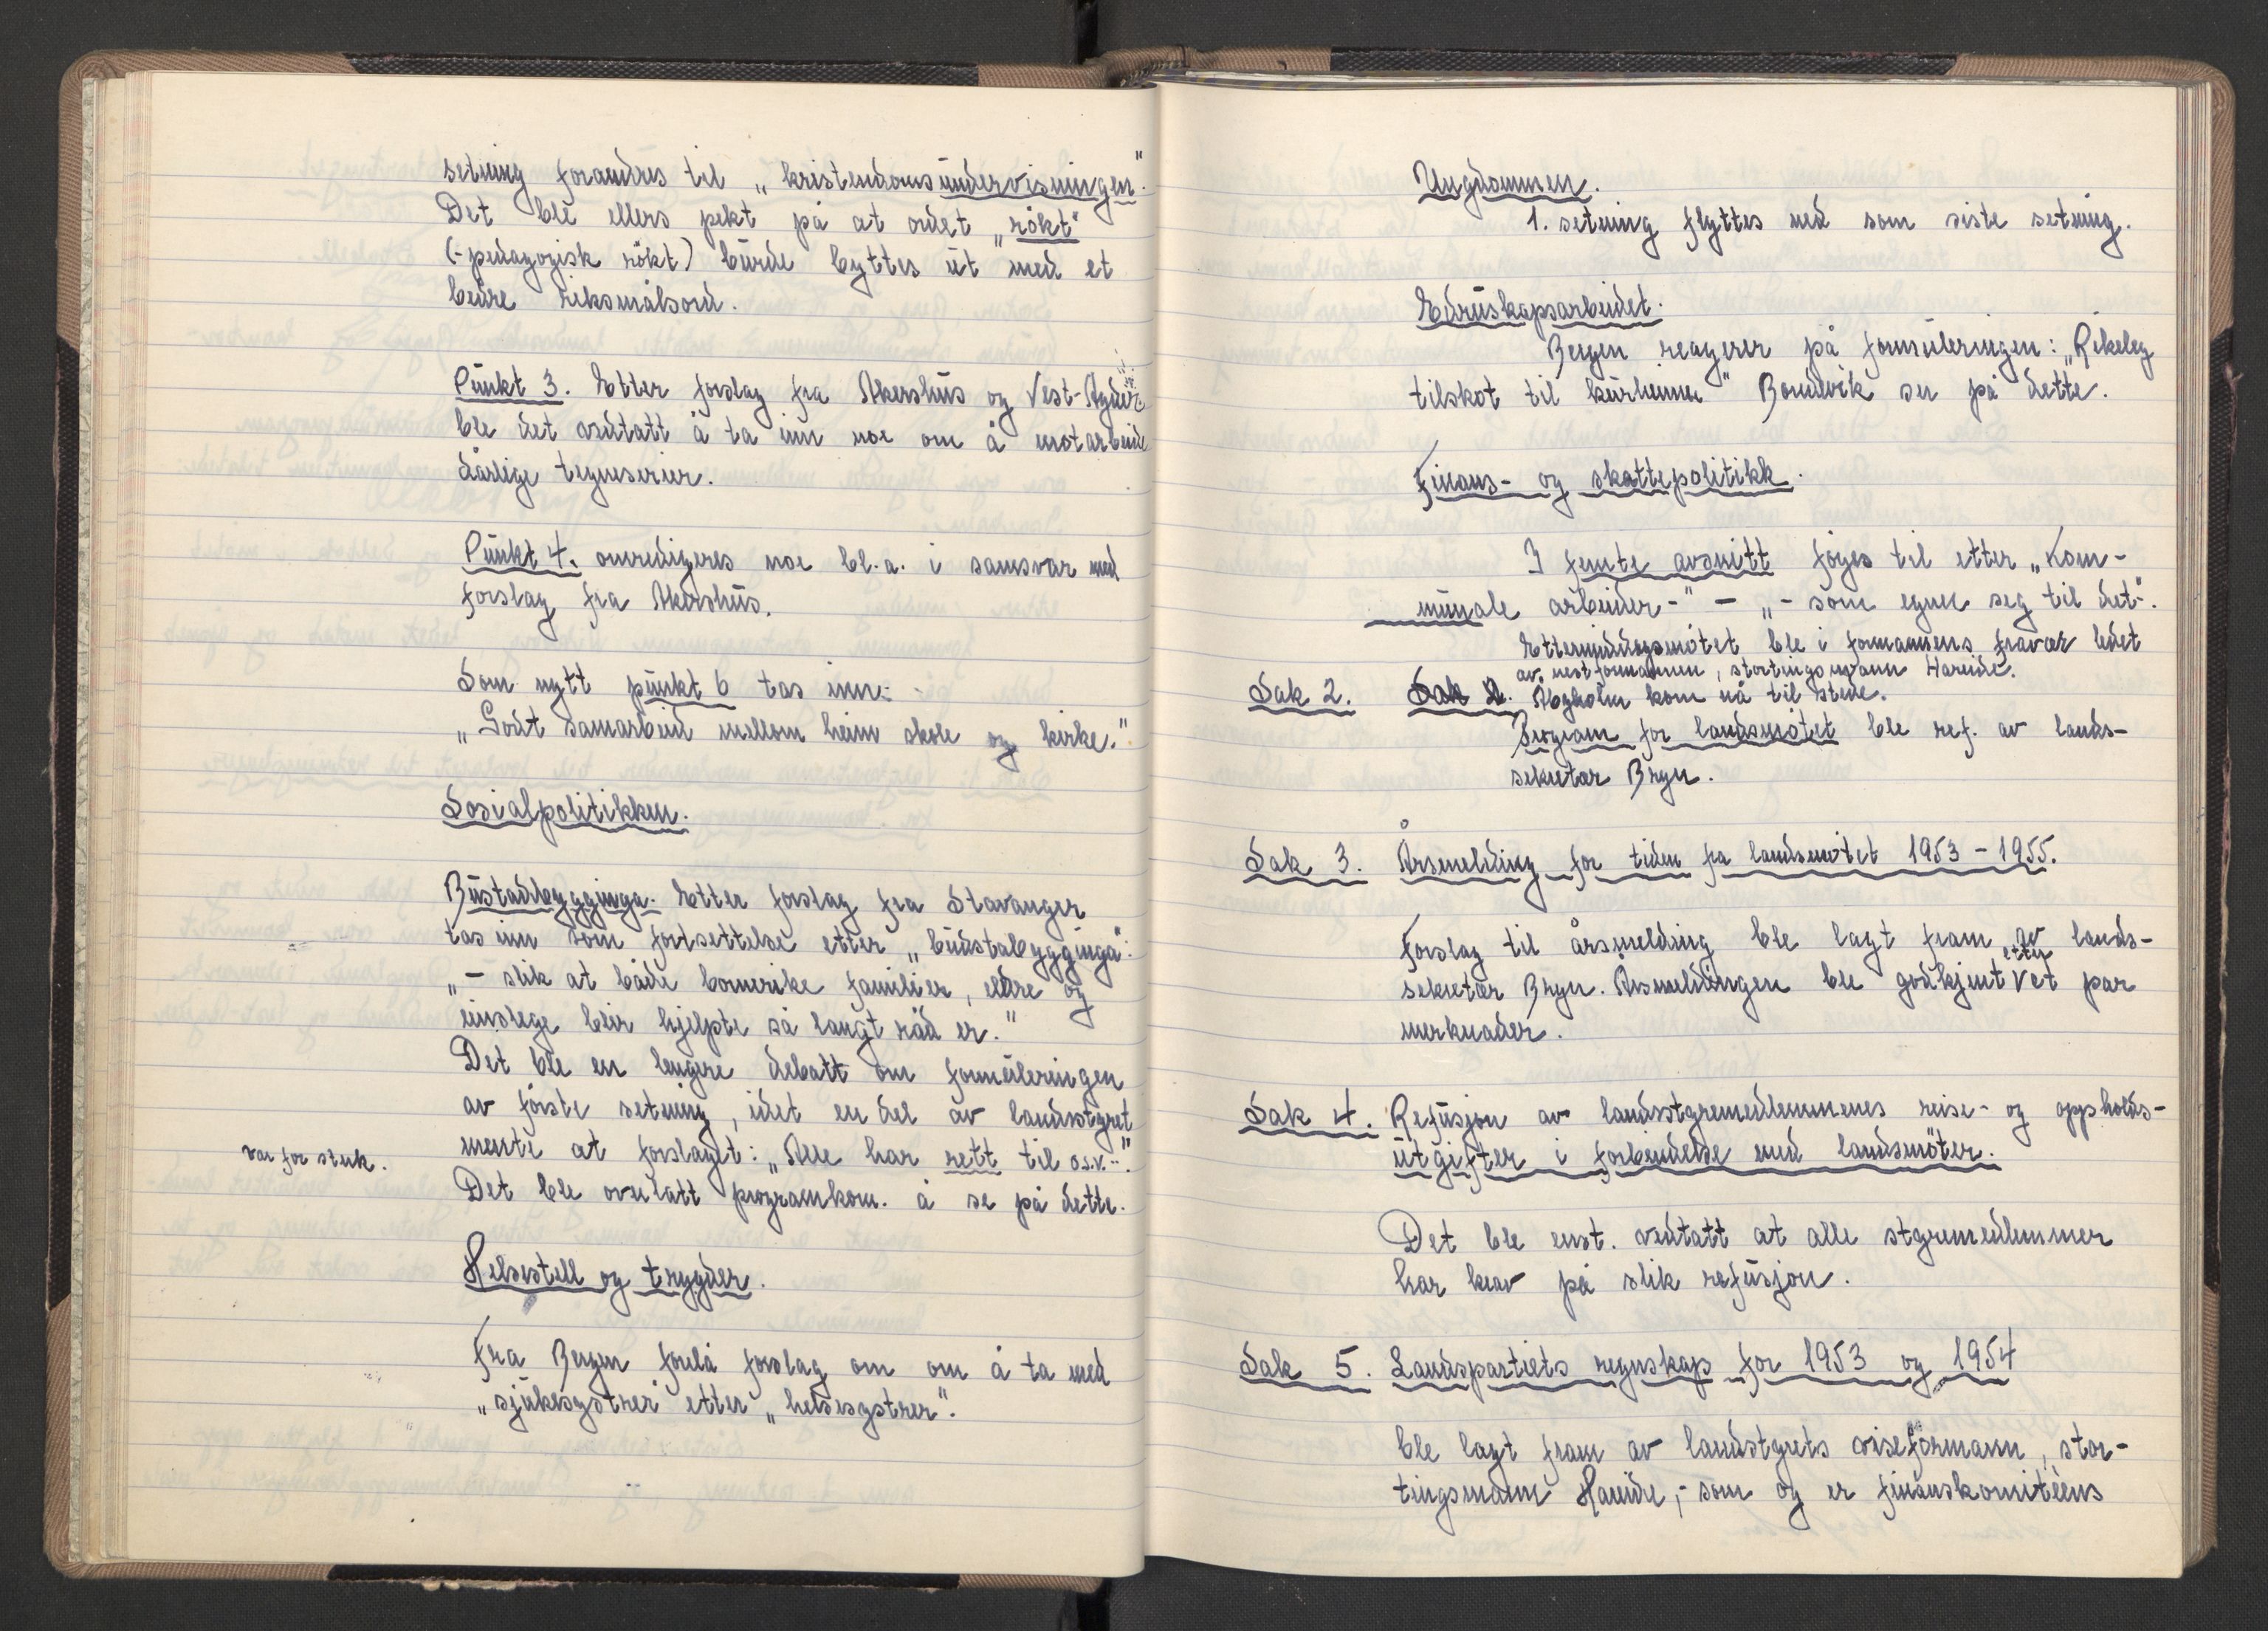 setning forandres til „kristendomsundervisningen".
Det ble ellers pekt på at ordet „rökt"
(-pedagogisk rökt) burde byttes ut med et
bedre riksmålsord.
Punkt 3. Etter forslag fra Akershus og Vest-Agder
ble det vedtatt å ta inn noe om å motarbeide
dårlige tegneserier.
Punkt 4. omredigeres noe bl.a. i samsvar med
forslag fra Akershus.
Som nytt punkt 6 tas inn: -
„Godt samarbeid mellom heim skole og kirke."
Sosialpolitikken.
Bustadbygginga. Etter forslag fra Stavanger
tas inn som fortsettelse etter „budstabygginga":
„- slik at både barnerike familier, eldre og
einslege blir hjelpte så langt råd er."
Det ble en lengre debatt om formuleringen
av förste setning, idet en del av landsstyret
mente at forslaget: „Alle har rett til o.s.v. -".
var for sterk.
Det ble overlatt programkom. å se på dette.
Helsestell og trygder.
Fra Bergen forelå forslag om om å ta med
„sjukesystrer" etter „helsesystrer".
Ungdommen.
1. setning flyttes ned som siste setning.
Edruskapsarbeidet.
Bergen reagerer på formuleringen: „Rikeleg
tilskot til kurheimer" Bondevik ser på dette.
Finans- og skattepolitikk.
I femte avsnitt föyes til etter „Kom-
munale arbeider-" - „- som egner seg til det-".
Ettermiddagsmötet ble i formannens fravær ledet
av nestformannen, stortingsmann Hareide.
Sak 2. Sak 2. Myholm kom nå til stede.
Program for landsmötet ble ref. av lands-
sekretær Bryn.
Sak 3. Årsmelding for tiden fra landsmötet 1953 - 1955.
Forslag til årsmelding ble lagt fram av lands-
sekretær Bryn. Årsmeldingen ble godkjent etter et par
merknader.
Sak 4. Refusjon av landsstyremedlemmenes reise- og oppholds-
utgifter i forbindelse med landsmöter.
Det ble enst. vedtatt at alle styremedlemmer
har krav på slik refusjon.
Sak 5. Landspartiets regnskap for 1953 og 1954
ble lagt fram av landsstyrets viseformann, stor-
tingsmann Hareide, - som og er finanskomitéens